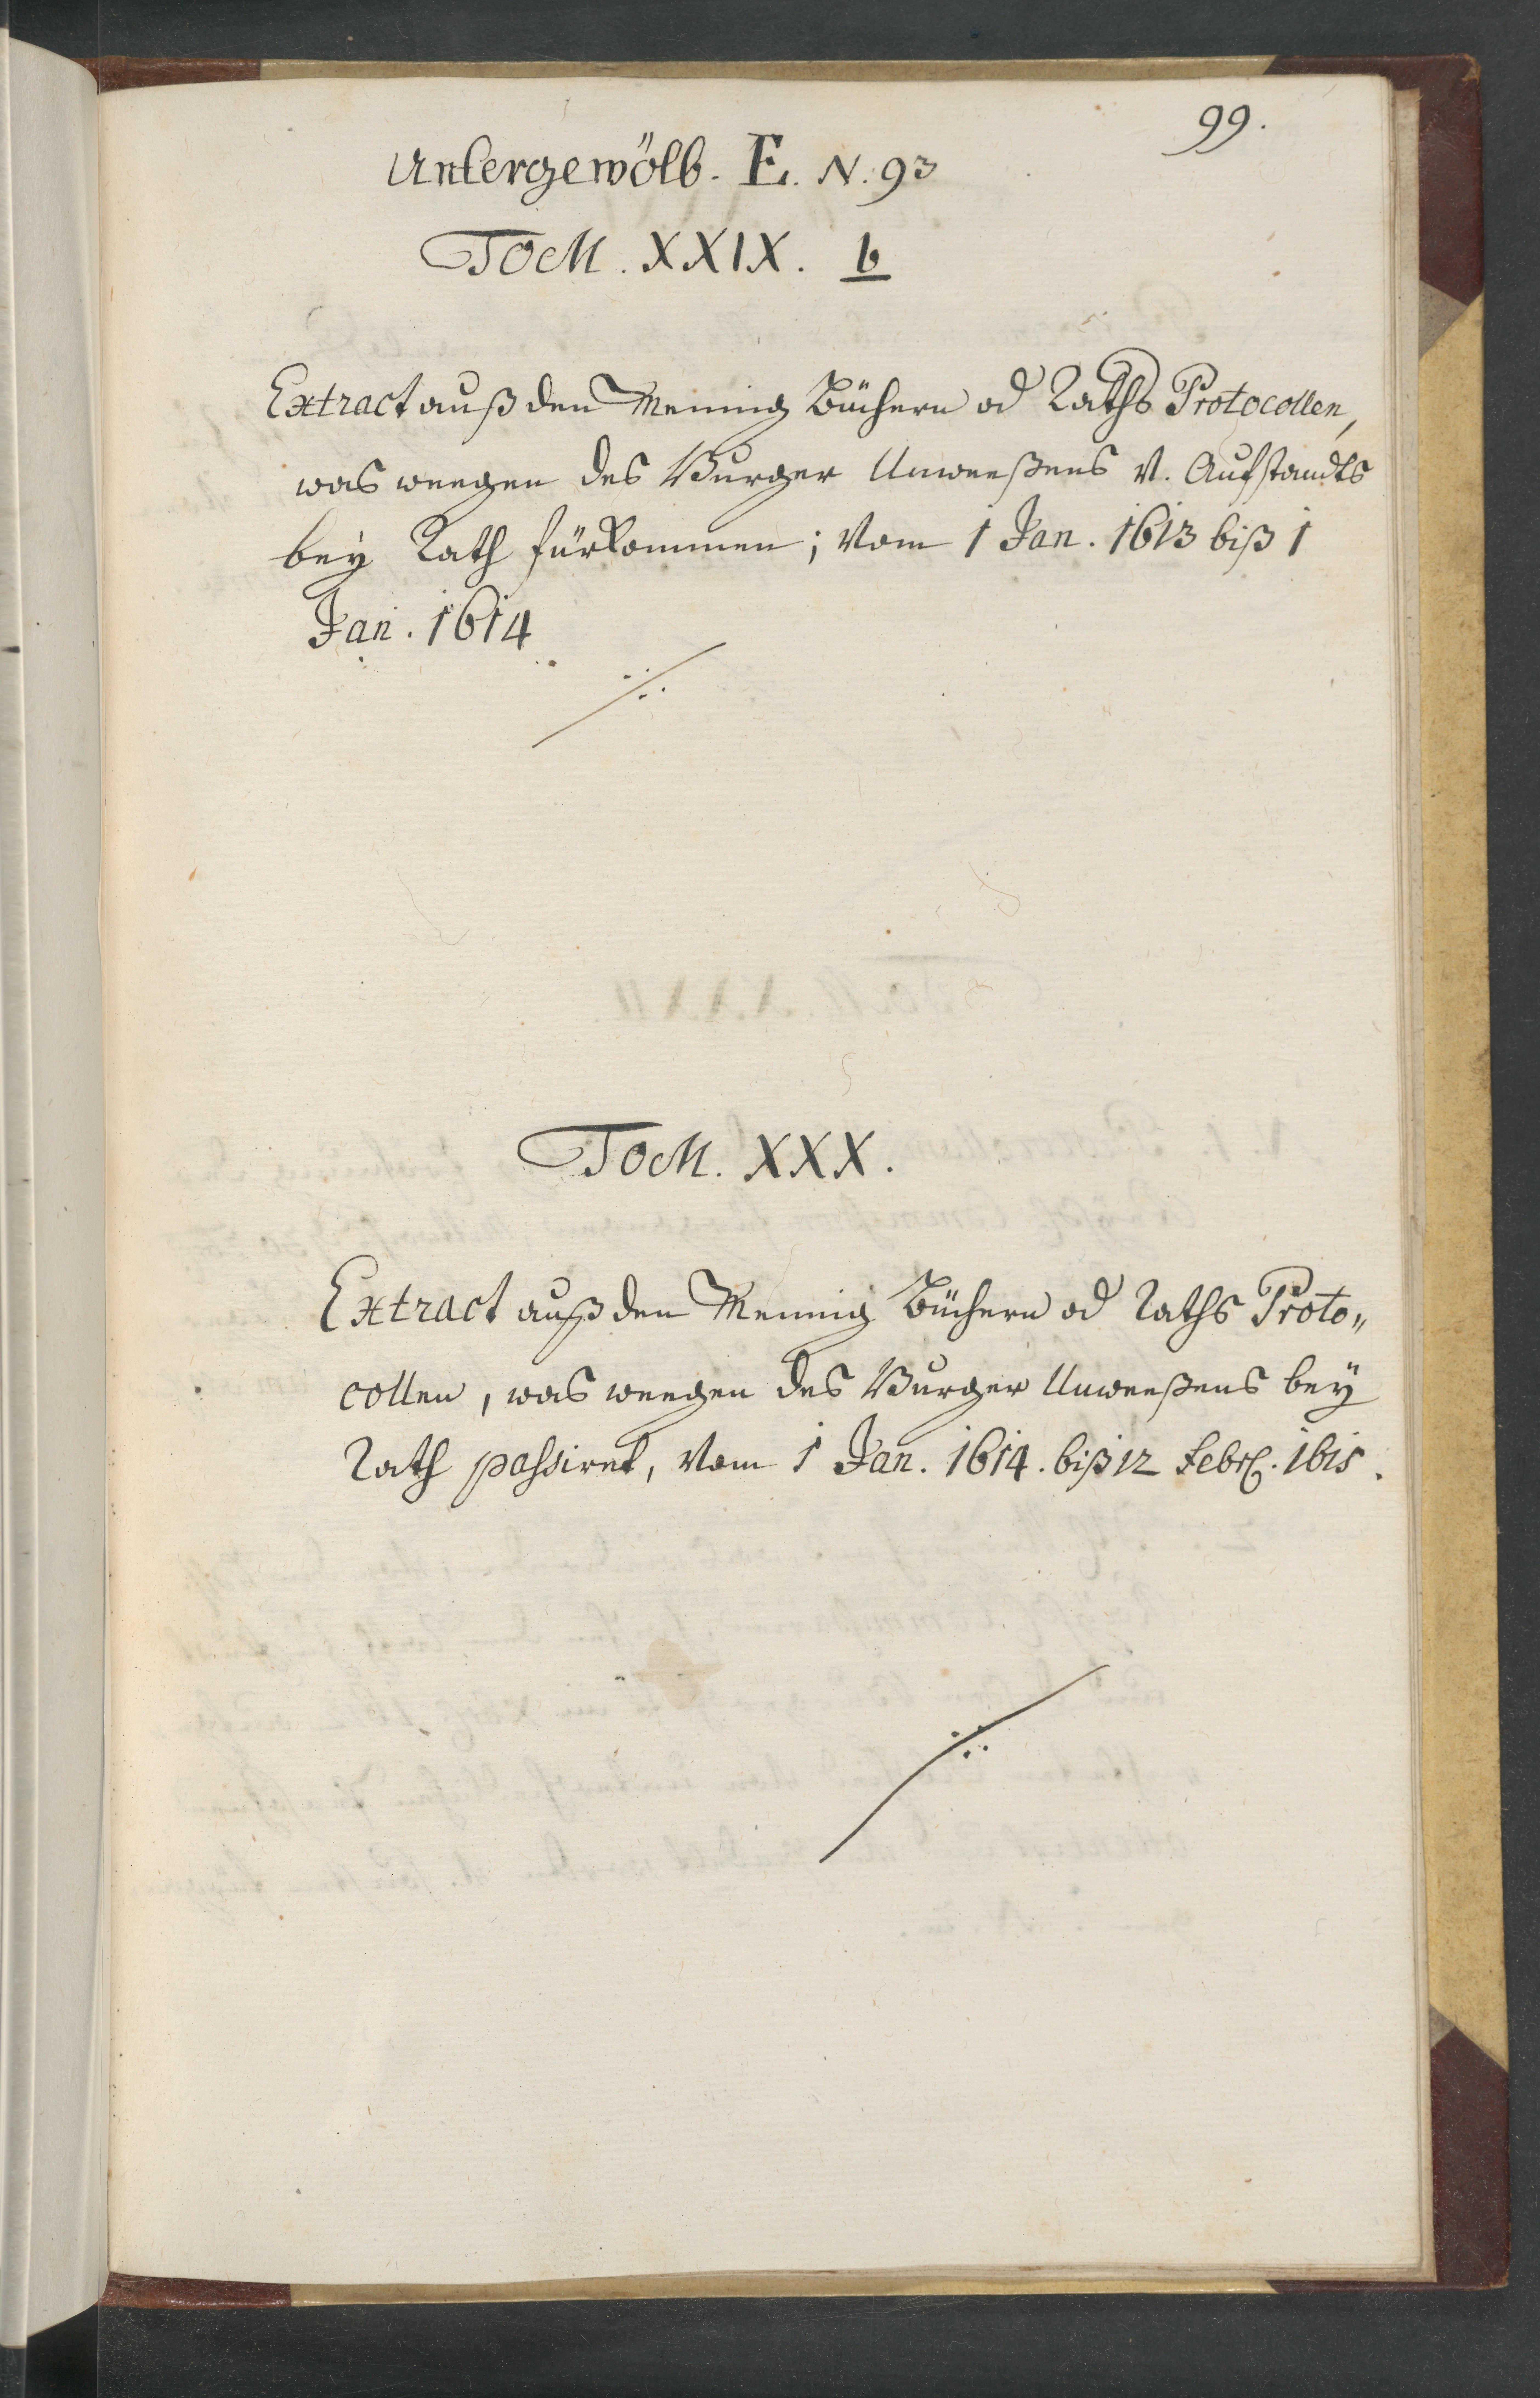 99.
Untergewölb. E. N. 93
TOM. XXIX. b
Extract auß den Meinung Büchern od Raths Protocollen,
was weegen des Burger Unweeßens v. Aufstandts
bey Rath fürkommen; Vom 1 Jan. 1613 biß 1
Jan. 1614
TOM. XXX.
Extract auß den Meinung Büchern od Raths Proto„
collen, was weegen des Burger Unweeßens bey
Rath passiret, Vom 1 Jan. 1614. biß 12 Febr. 1615.